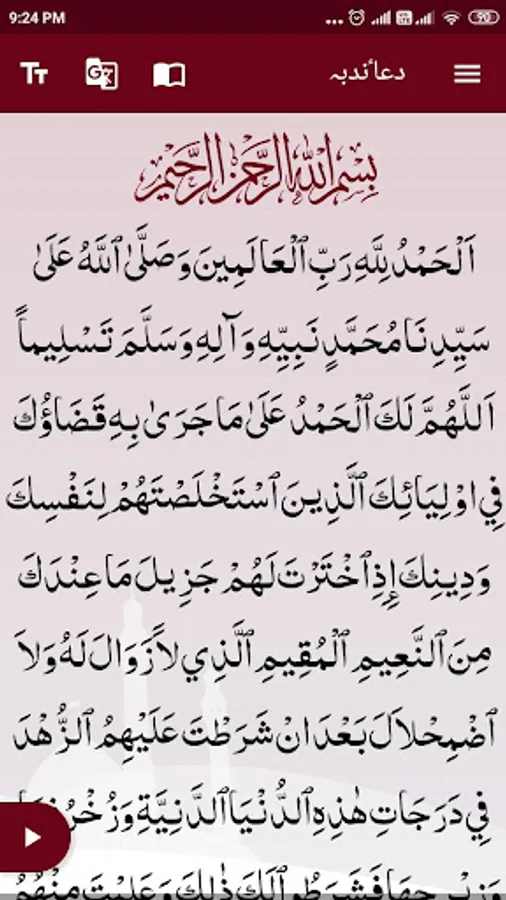 9:24 PM
90
دعأندبہ
بِسْمِ اللهِ الرَّحْمَنِ الرَّحِيْمِ
اَلْحَمْدُ لِلَّهِ رَبِّ ٱلْعَالَمِينَ وَصَلَّىٰ ٱللَّهُ عَلَىٰ
سَيِّدِنَا مُحَمَّدٍ نَبِيِّهِ وَآلِهِ وَسَلَّمَ تَسْلِيماً
اَللَّهُمَّ لَكَ ٱلْحَمْدُ عَلَىٰ مَا جَرَىٰ بِهِ قَضَاؤُكَ
فِي اوْلِيَائِكَ ٱلَّذِينَ ٱسْتَخْلَصْتَهُمْ لِنَفْسِكَ
وَدِينِكَ إِذِ ٱخْتَرْتَ لَهُمْ جَزِيلَ مَا عِنْدَكَ
مِنَ ٱلنَّعِيمِ ٱلْمُقِيمِ ٱلَّذِي لاَ زَوَالَ لَهُ وَلاَ
ٱضْمِحْلاَلَ بَعْدَ انْ شَرَطْتَ عَلَيْهِمُ ٱلزُّهْدَ
فِي دَرَجَاتِ هٰذِهِ ٱلدُّنْيَا ٱلدَّنِيَّةِ وَزُخْرُفِهَا
وَزِبْرِجِهَا فَشَرَطُوٱ لَكَ ذٰلِكَ وَعَلِمْتَ مِنْهُمُ